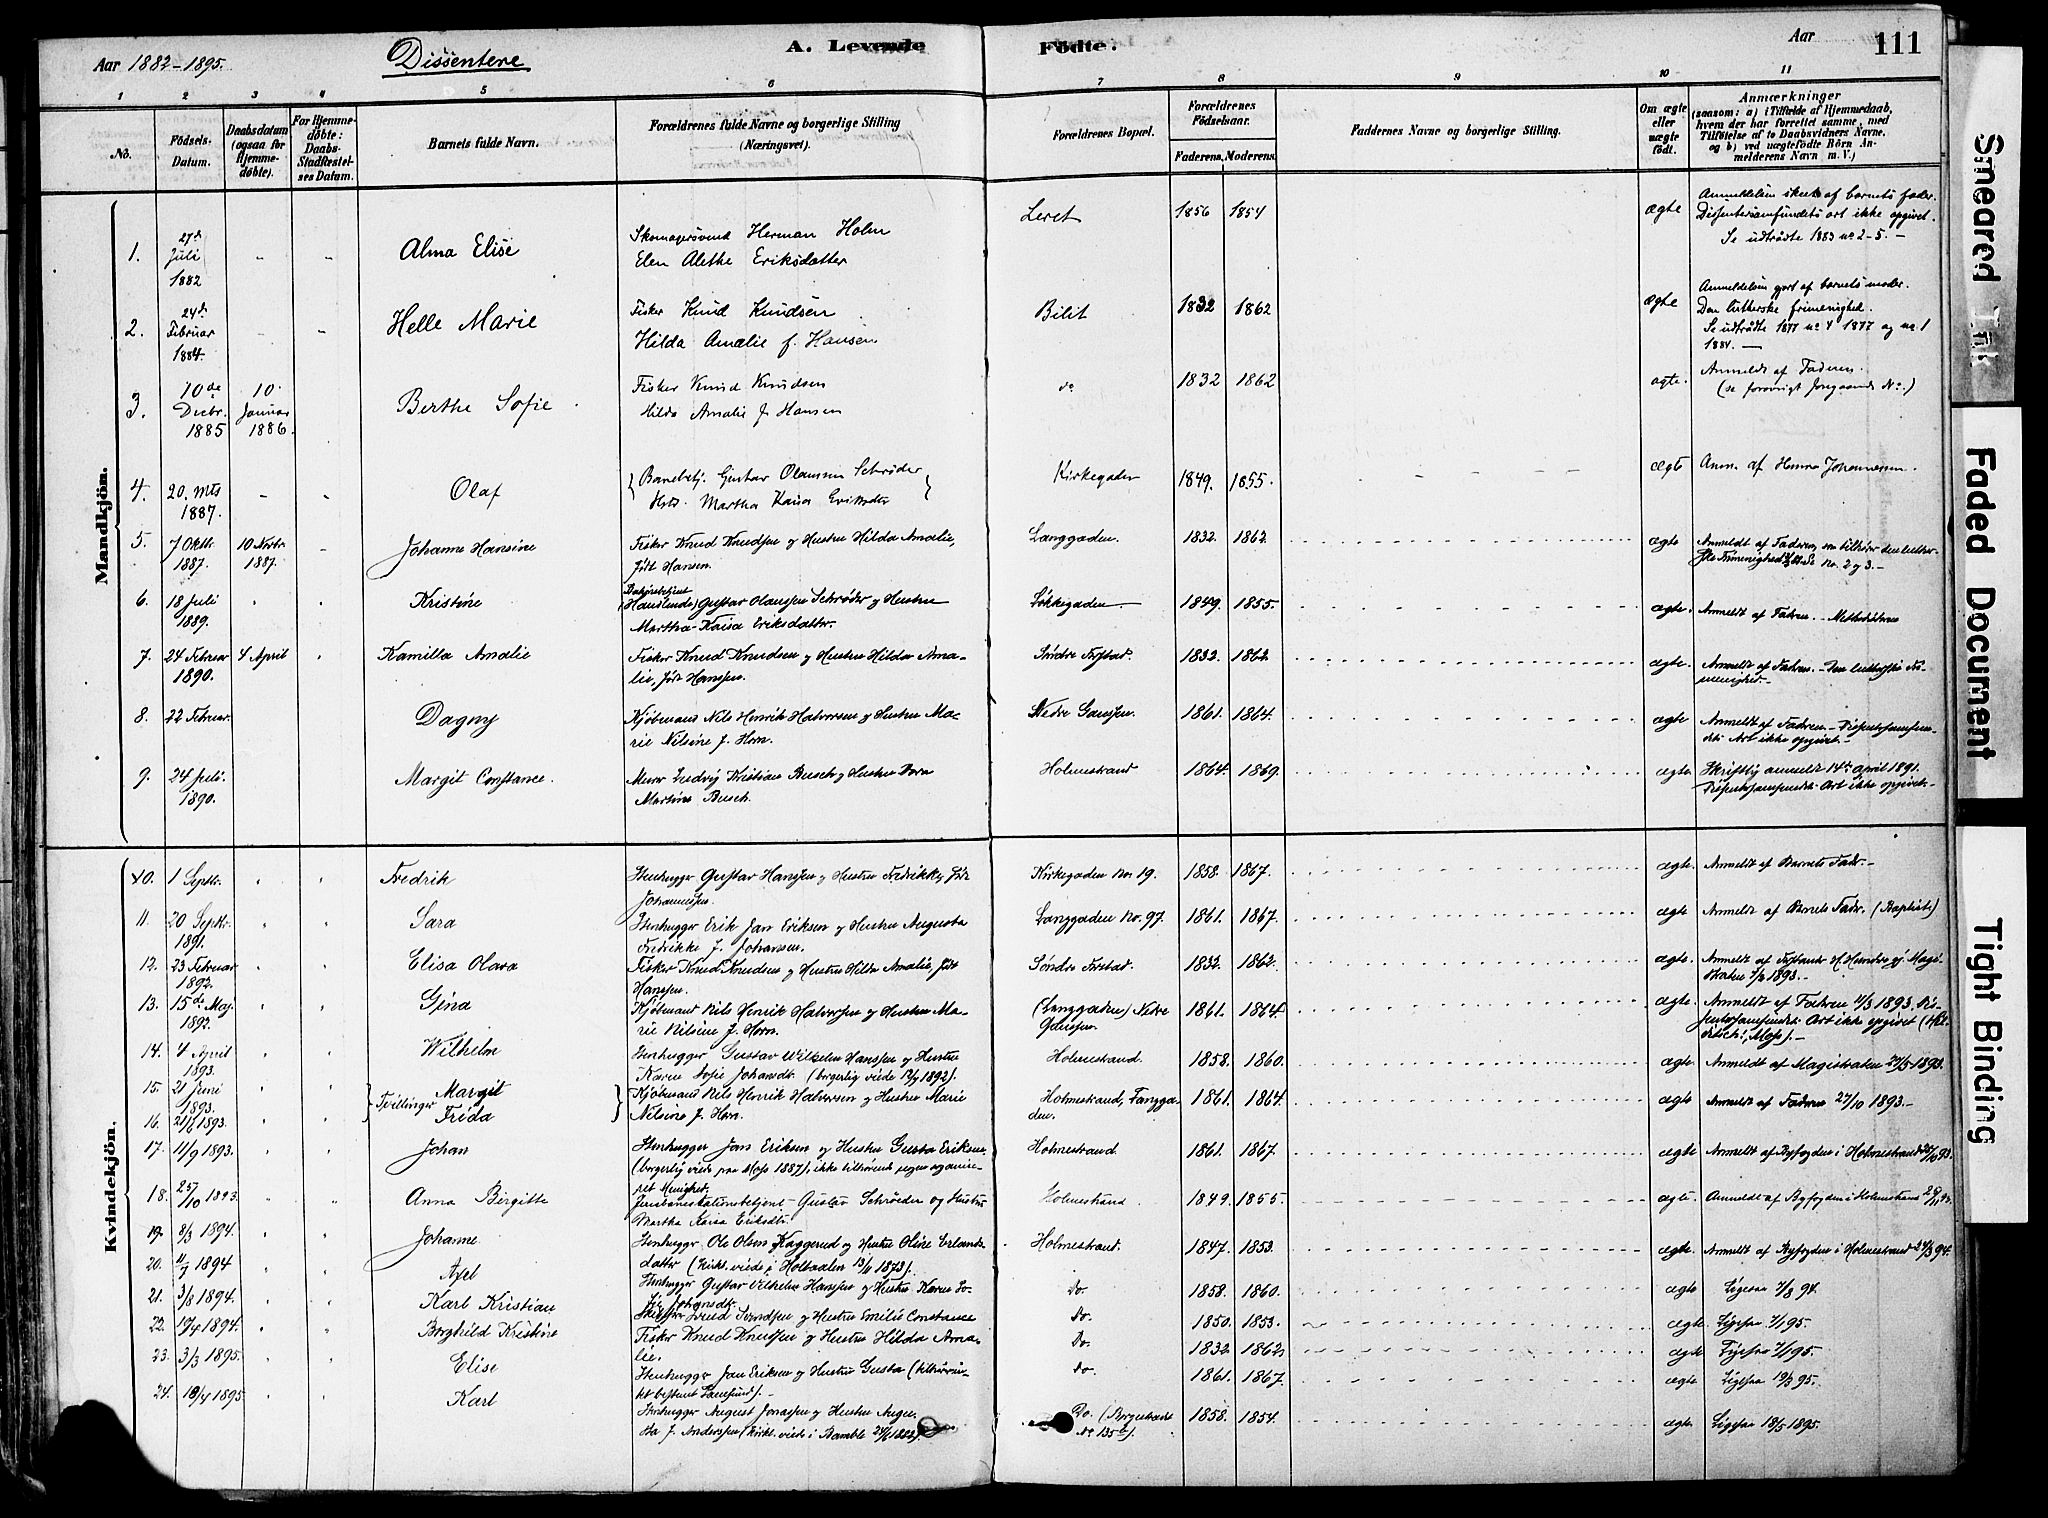 Aar 1882-1895.
Dissentere
A. Levende Fødte.
Aar
111
1 2 3 4 5 6 7 8 9 10 11
No.
Fødsels-Datum.
Daabsdatum (ogsaa for Hjemmedøbte).
For Hjemmedøbte: Daabs-Stadfæstelses Datum.
Barnets fulde Navn.
Forældrenes fulde Navne og borgerlige Stilling (Næringsvei).
Forældrenes Bopæl.
Forældrenes Fødselsaar.
Faderens. Moderens.
Faddernes Navne og borgerlige Stilling.
Om ægte eller uægte født.
Anmærkninger (saasom: a) i Tilfælde af Hjemmedaab, hvem der har forrettet samme, med Tilføielse af to Daabsvidners Navne. og b) ved uægtefødte Börn Anmelderens Navn m. V.)
Mandkjön.
1. 27de Juli 1882 Alma Elise
Skomagersvend Herman Holm
Elen Alethe Eriksdatter
Leret 1856 1854 ægte
Anmeldelsen skeet af barnets fader.
Dissentersamfundets art ikke opgivet.
Se udtrådte 1883 no 2-5. -
2. 24de Februar 1884. Helle Marie
Fisker Knud Knudsen
Hilda Amalie f. Hansen
Bilit 1832 1862 ægte
Anmeldelsen gjort af barnets moder.
Den lutherske frimenighed.
Se udtrådte 1877 no 4 1877 og no 1
1884. -
3. 10de Decbr. 1885 10 Januar 1886. Berthe Sofie
Fisker Knud Knudsen
Hilda Amalie f. Hansen
do 1832 1862 ægte.
Anmeldt af Faderen.
(se forrigt No.)
4. 20. Mts 1887. Olaf
Banebetj. Gustav Olaussen Schrøder
Hstr. Martha Kaisa Eriksdtr
Kirkegaden 1849. 1855. ægte
Anm. af Johannessen.
5. 7 Oktbr. 1887. 10 Novbr. 1887. Johanne Hansine
Fisker Knud Knudsen og Hustru Hilda Amalie,
født Hansen.
Langgaden. 1832. 1862. ægte
Anmeldt af Faderen, som tilhører den luther-
ske Frimenighed. Se no. 2 og 3. -
6. 18 Juli 1889. Kristine
(Handlende) Gustav Olaussen Schrøder og Hustru
Martha Kaisa Eriksdatter.
1849. 1855. ægte.
Anmeldt af Fadren. - Methodisterne
7. 24 Februar 1890. 4 April Kamilla Amalie
Fisker Knud Knudsen og Hustru Hilda Ama-
lie, født Hanssen.
Søndre 1832. 1862. ægte.
Anmeldt af Fadren. - Den lutherske Fri-
menighed. -
8. 22 Februar. Dagny
Kjøbmand Nils Henrik Halvorsen og Hustru Ma-
rie Nilsine f. Horn.
Nedre Gaussen. 1861. 1864. ægte
Anmeldt af Fadren. - Dissentersamfun-
dets Art ikke opgivet. -
9. 24 Juli 1890. Margit Constance.
Murer Ludvig Kristian Busch og Hustru Dora
Martine Busch.
Holmestrand 1864. 1869. ægte
Skriftlig anmeldt 14de April 1891.
Dissentersamfundets Art ikke opgivet. -
Kvindekjön.
10. 1 Septbr. Fredrik
Stenhugger Gustav Hanssen og Hustru Fredrikke, født
Johannessen.
Kirkegaden No. 19. 1858. 1867. ægte.
Anmeldt af Barnets Fader. -
11. 20 Septbr. 1891. Sara
Stenhugger Erik Jan Eriksen og Hustru Augusta
Fredrikke f. Johansen.
Langgaden No. 97. 1861. 1867. ægte.
Anmeldt af Barnets Fader. (Baptist.)
12. 23 Februar 1892. Elisa Olava
Fisker Knud Knudsen og Hustru Hilda Amalie, født
Hanssen.
Søndre 1832. 1862. ægte.
Anmeldt af 1893. -
13. 15de Maj 1892. Gina
Kjøbmand Nils Henrik Halvorsen og Hustru Ma-
rie Nilsine f. Horn.
(Langgaden) Nedre
Gaussen. 1861. 1864. ægte.
Anmeldt af Fadren 11/3 1893. Dis-
sentersamfundets Art ikke opgivet
14. 4 April 1893. Wilhelm
Stenhugger Gustav Wilhelm Hanssen og Hustru
Karen Sofie Johansdt. (borgerlig viede 1892).
Holmestrand. 1858. 1860. ægte
Anmeldt af Magistraten 27/5 1893.
15. 21 Juni 1893. Margit
16. 21/6 1893. Frida
Tvillinger
Kjøbmand Nils Henrik Halvorsen og Hustru Marie
Nilsine f. Horn.
Holmestrand, Langga-
den. 1861. 1864. ægte
Anmeldt af Fadren 27/10 1893. -
17. 11/9 1893. Johan
Stenhugger Jan Eriksen og Hustru Gusta Eriksen.
(borgerlig viede paa Moss 1887), ikke tilhørende organise-
ret Menighed.
Holmestrand 1861. 1867. ægte
Anmeldt af Byfogden i Holmestrand 93.
18. 25/10 1893. Anna Birgitte
Jernbanestationsbetjent Gustav Schrøder og Hustru
Martha Kaisa Eriksdt.
Holmestrand. 1849. 1855. ægte.
Anmeldt af Byfogden i Holmestrand 93.
19. 8/3 1894. Johanne
Stenhugger Ole Olsen Kaggerud og Hustru Oline Erlands-
datter (kirk. viede i 13/11 1873).
Holmestrand. 1847. 1853. ægte.
Anmeldt af Byfogden i Holmestrand 24/3 94.
20. 11/7 1894 Axel
Stenhugger Gustav Vilhelm Hanssen og Hustru Karen So-
fie Johansdt.
Do. 1858. 1860. ægte
Ligesaa 94.
21. 3/8 1894. Karl Kristian
og Hustru Emilie Constance
Do. 1850. 1853. ægte
Ligesaa 95.
22. 1894. Borghild Kristine
Fisker Knud Knudsen og Hustru Hilda Ama-
lie.
Do. 1832 1862. ægte
Ligesaa 95.
23. 3/3 1895. Elise
Stenhugger Jan Eriksen og Hustru Gusta (tilhører in-
tet bestemt Samfund). -
Do. 1861. 1867. ægte
Ligesaa 19/3 95.
24. 18/4 1895. Karl
Stenhugger August Jonassen og Hustru Augu-
sta f. Anderssen (kirkl. viede i Bamble 1882).
Do. No 135 1858. 1854. ægte.
Ligesaa 18/5 1895.
Smeared Ink
Faded Document
Tight Binding